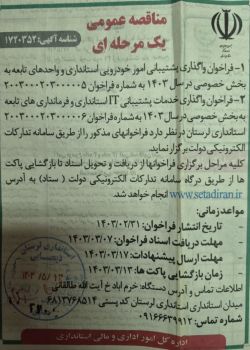 مناقصه عمومی
یک مرحله ای
شناسه آگهی: ۱۷۲۰۳۵۲
۱- فراخوان واگذاری پشتیبانی امور خودرویی استانداری و واحدهای تابعه به
بخش خصوصی در سال ۱۴۰۳ به شماره فراخوان ۲۰۰۳۰۰۰۲۰۳۰۰۰۰۰۵
۲- فراخوان واگذاری خدمات پشتیبانی IT استانداری و فرمانداری های تابعه
به بخش خصوصی در سال ۱۴۰۳ به شماره فراخوان ۲۰۰۳۰۰۰۲۰۳۰۰۰۰۰۶
استانداری لرستان در نظر دارد فراخوانهای مذکور را از طریق سامانه تدارکات
الکترونیکی دولت برگزار نماید.
کلیه مراحل برگزاری فراخوانها از دریافت و تحویل اسناد تا بازگشایی پاکت
ها از طریق درگاه سامانه تدارکات الکترونیکی دولت ( ستاد) به آدرس
www.setadiran.ir انجام خواهد شد.
مواعد زمانی:
- تاریخ انتشار فراخوان: ۱۴۰۳/۰۲/۳۱
- مهلت دریافت اسناد فراخوان: ۱۴۰۳/۰۳/۰۷
- مهلت ارسال پیشنهادات: ۱۴۰۳/۰۳/۱۷
- زمان بازگشایی پاکت ها: ۱۴۰۳/۰۳/۱۲
اطلاعات تماس و آدرس دستگاه: خرم اباد خ آیت الله طالقانی
میدان استانداری استانداری لرستان کد پستی ۶۸۱۳۷۶۸۵۱۴
شماره تماس: ۰۹۱۶۶۶۳۹۹۱۲
اداره کل امور اداری و مالی استانداری